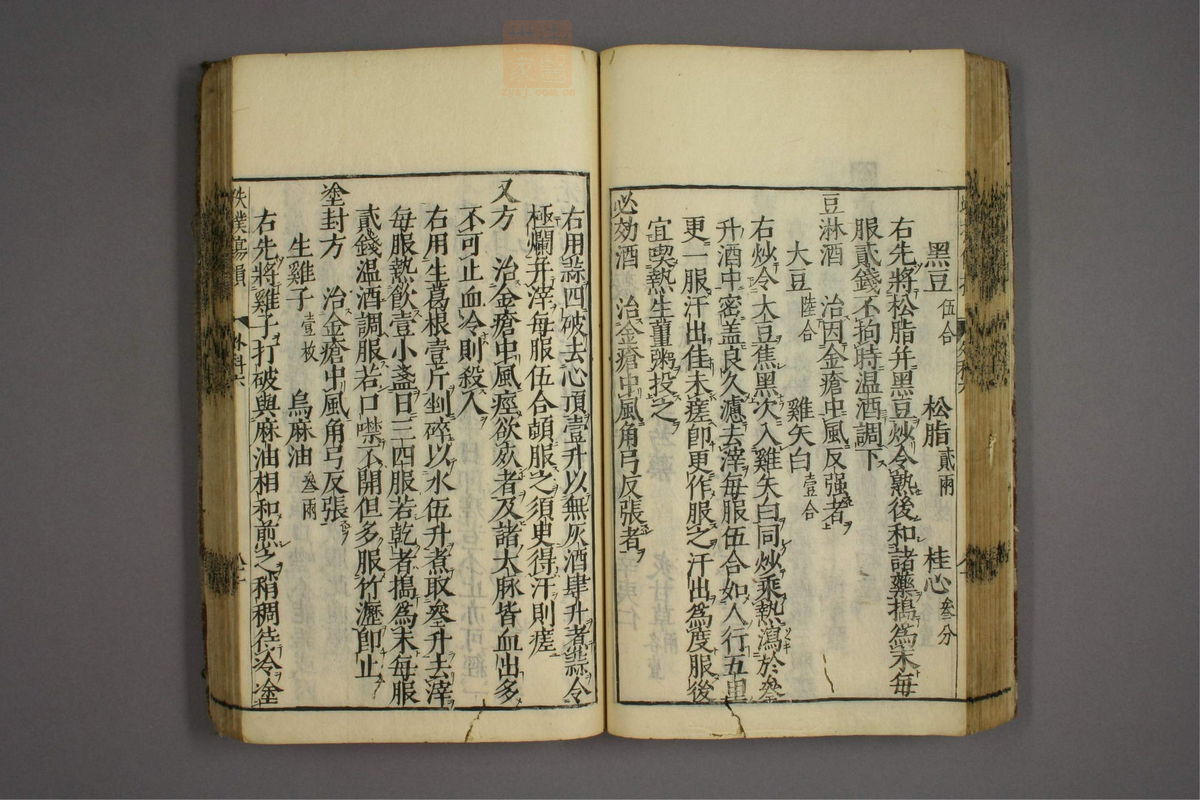 黑豆 伍合 松脂 貳兩 桂心 叄分
右先將松脂并黑豆炒令熟後和諸藥搗為末每
服貳錢不拘時温酒調下
豆淋酒 治因金瘡中風反强者
大豆 陸合 雞矢白 壹合
右炒令大豆焦黑次入雞矢白同炒乘熱瀉於叄
升酒中密盖良久濾去滓每服伍合如人行五里
更一服汗出佳未瘥即更作服之汗出為度服後
宜喫熱生薑粥投之
必効酒 治金瘡中風角弓反張者
右用蒜四破去心頂壹升以無灰酒肆升煮蒜令
極爛并滓每服伍合頓服之須臾得汗則瘥
又方 治金瘡中風痙欲死者及諸大脉皆血出多
不可止血冷則殺人
右用生葛根壹斤剉碎以水伍升煮取叄升去滓
每服熱飲壹小盞日三四服若乾者搗為末每服
貳錢温酒調服若口噤不開但多服竹瀝即止
塗封方 治金瘡中風角弓反張
生雞子 壹枚 烏麻油 叄兩
右先將雞子打破與麻油相和煎之稍稠待冷塗
外科六